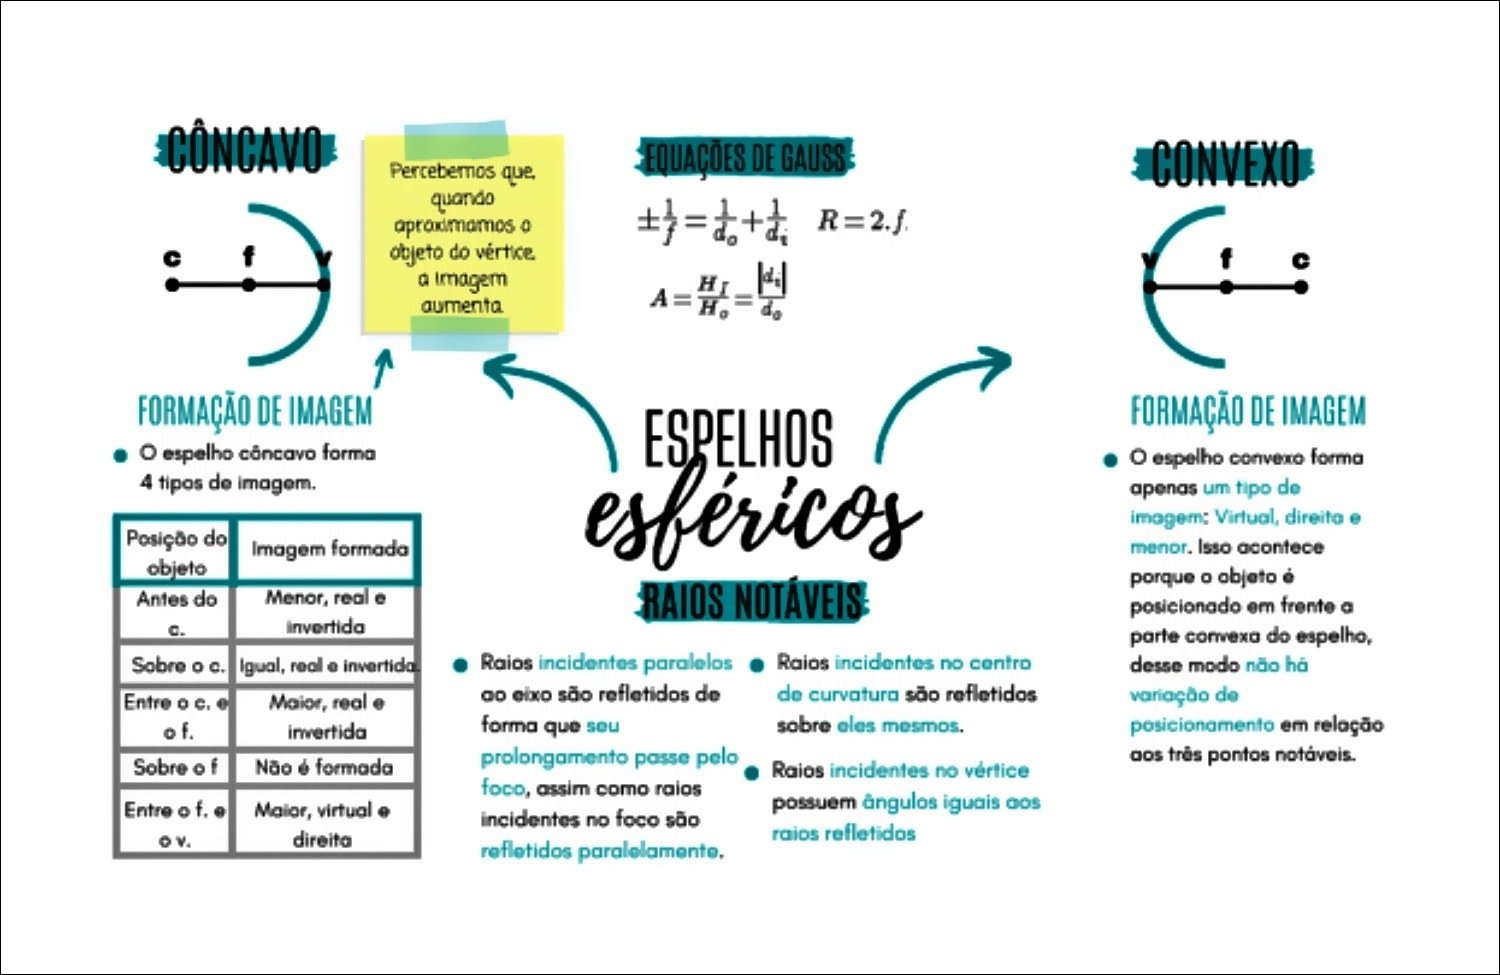 CÔNCAVO
c f v
Percebemos que,
quando
aproximamos o
objeto do vértice,
a imagem
aumenta.
FORMAÇÃO DE IMAGEM
O espelho côncavo forma
4 tipos de imagem.
Posição do
objeto
Imagem formada
Antes do
c.
Menor, real e
invertida
Sobre o c.
Igual, real e invertida.
Entre o c. e
o f.
Maior, real e
invertida
Sobre o f
Não é formada
Entre o f. e
o v.
Maior, virtual e
direita
EQUAÇÕES DE GAUSS
±1/f = 1/d_o + 1/d_i R = 2.f.
A = H_I/H_o = |d_i|/d_o
ESPELHOS
esféricos
RAIOS NOTÁVEIS
Raios incidentes paralelos
ao eixo são refletidos de
forma que seu
prolongamento passe pelo
foco, assim como raios
incidentes no foco são
refletidos paralelamente.
Raios incidentes no centro
de curvatura são refletidos
sobre eles mesmos.
Raios incidentes no vértice
possuem ângulos iguais aos
raios refletidos
CONVEXO
v f c
FORMAÇÃO DE IMAGEM
O espelho convexo forma
apenas um tipo de
imagem: Virtual, direita e
menor. Isso acontece
porque o objeto é
posicionado em frente a
parte convexa do espelho,
desse modo não há
variação de
posicionamento em relação
aos três pontos notáveis.